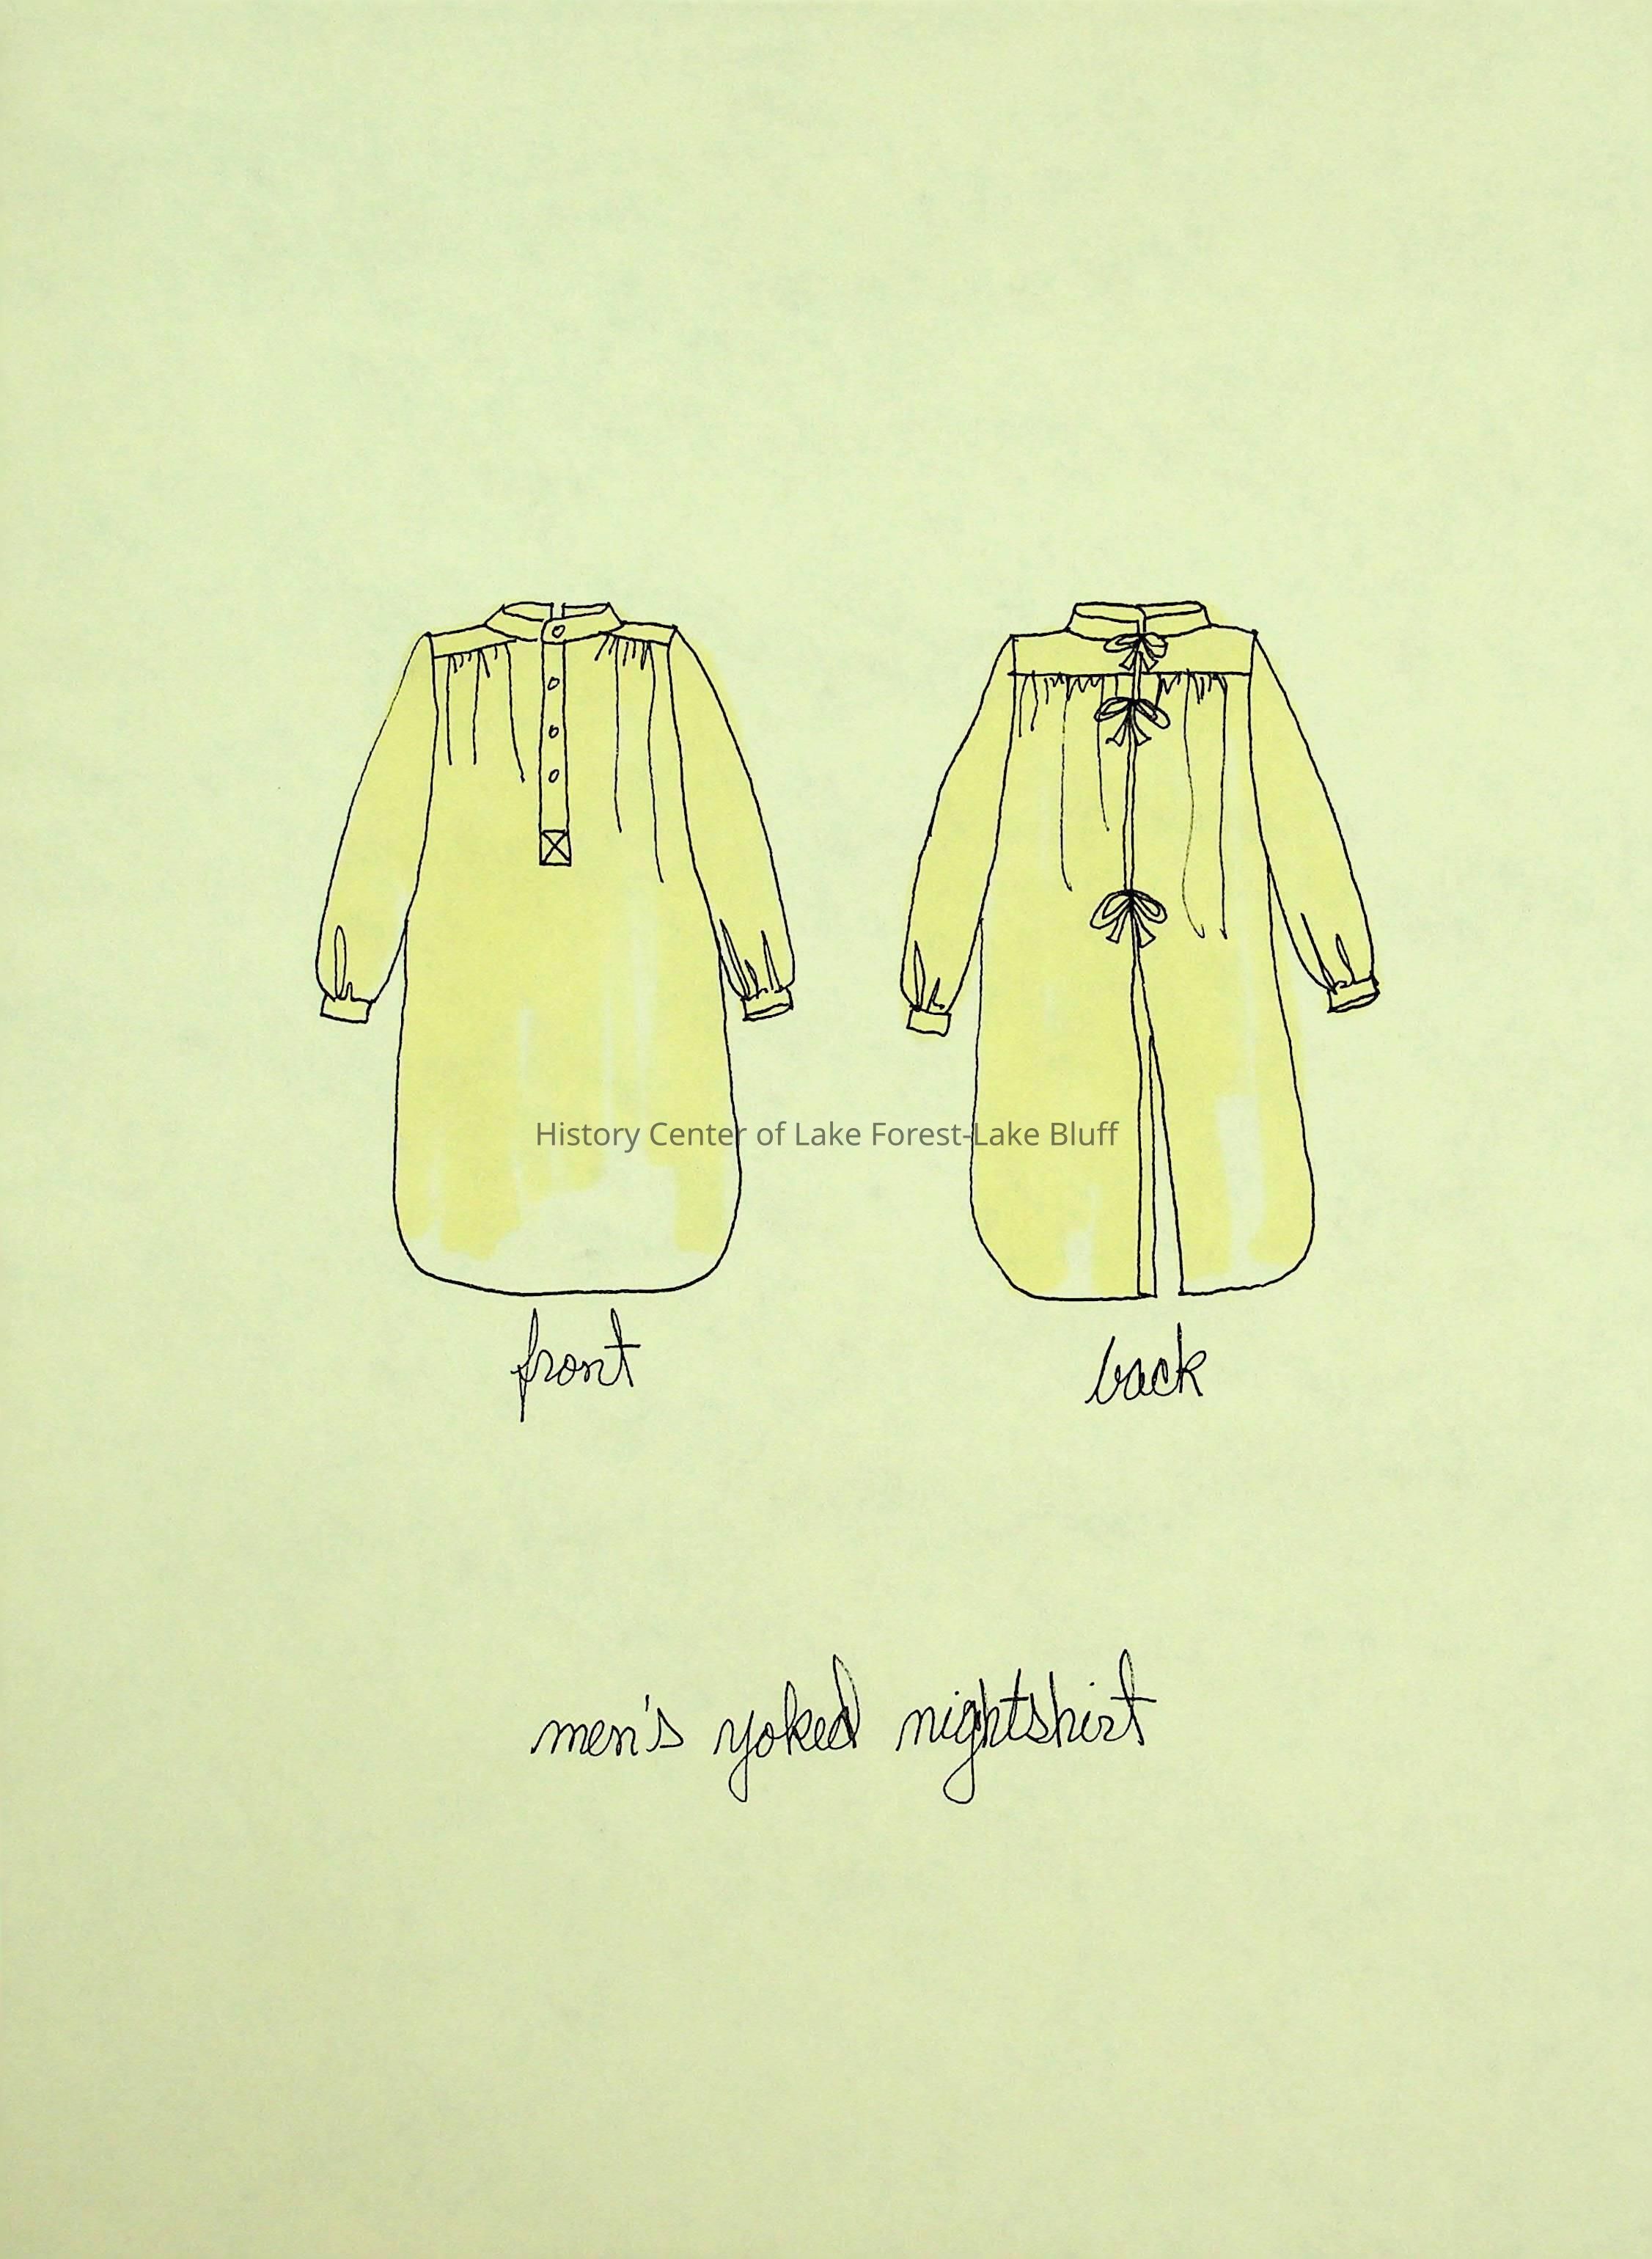 History Center of Lake Forest-Lake Bluff
front
back
men's yoked nightshirt